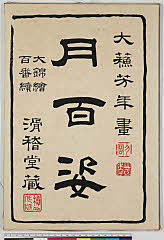 大蘇芳年畫
月百姿
大錦繪
百番續
滑稽堂藏